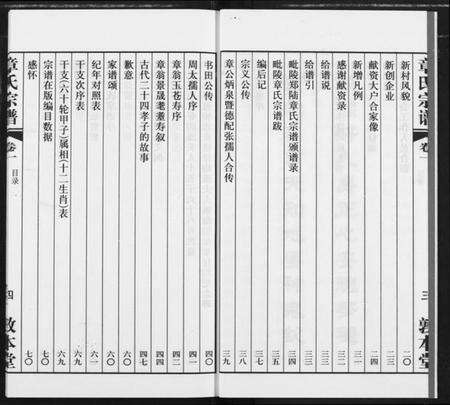 章氏宗谱
卷一
三
敦本堂
新村风貌 二〇
新创企业 二三
献资大户合家像 二四
新增凡例 三一
感谢献资录 三二
给谱说 三三
给谱引 三三
毗陵郑陆章氏宗谱颁谱录 三四
毗陵章氏宗谱跋 三五
编后记 三七
宗义公传 三八
章公炳泉暨德配张孺人合传 三九
书田公传 四〇
周太孺人序 四一
章翁玉苍寿序 四二
章翁景晟耄耋寿叙 四四
古代二十四孝子的故事 四七
歉意 六〇
家谱颂 六〇
纪年对照表 六一
干支次序表 六九
干支(六十轮甲子)属相(十二生肖)表 六九
宗谱在版编目数据 七〇
感怀 七〇
章氏宗谱
卷一
目录
四
敦本堂